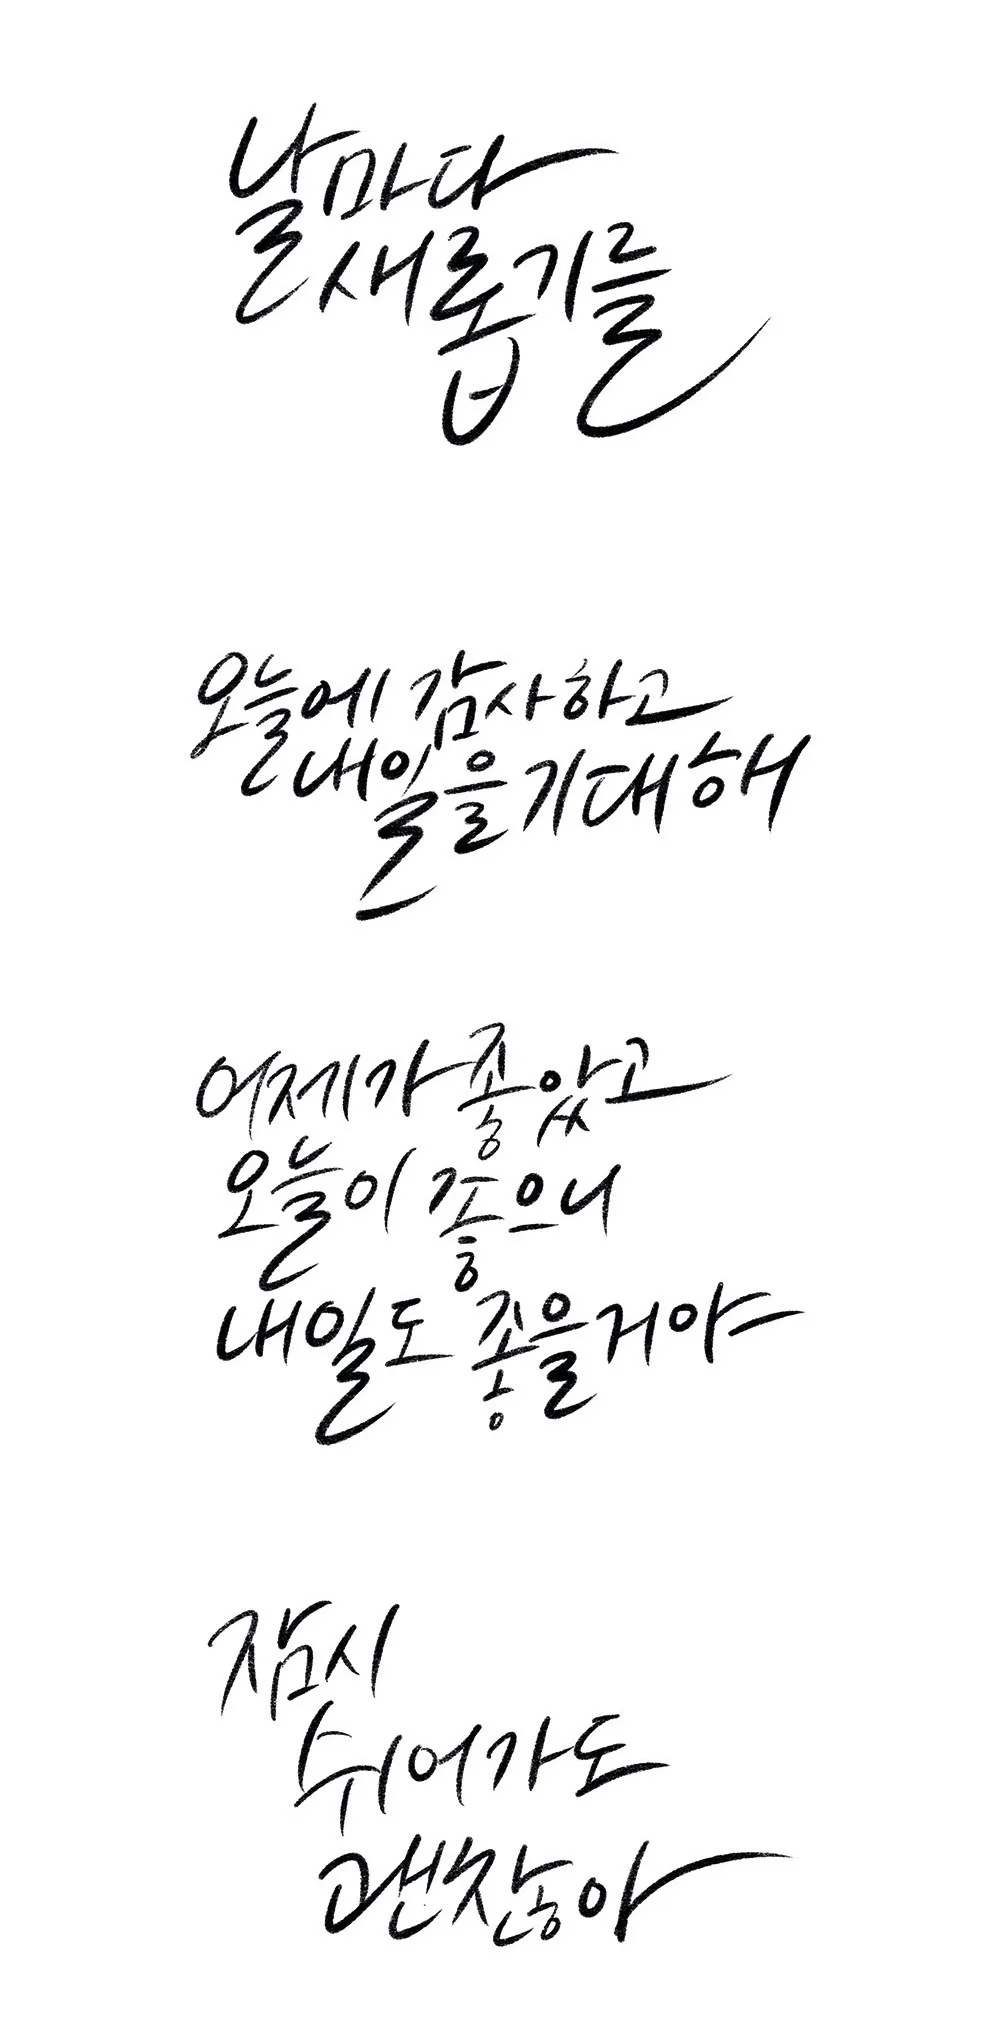 날마다
새롭기를
오늘에 감사하고
내일을 기대해
어제가 좋았고
오늘이 좋으니
내일도 좋을거야
잠시
쉬어가도
괜찮아